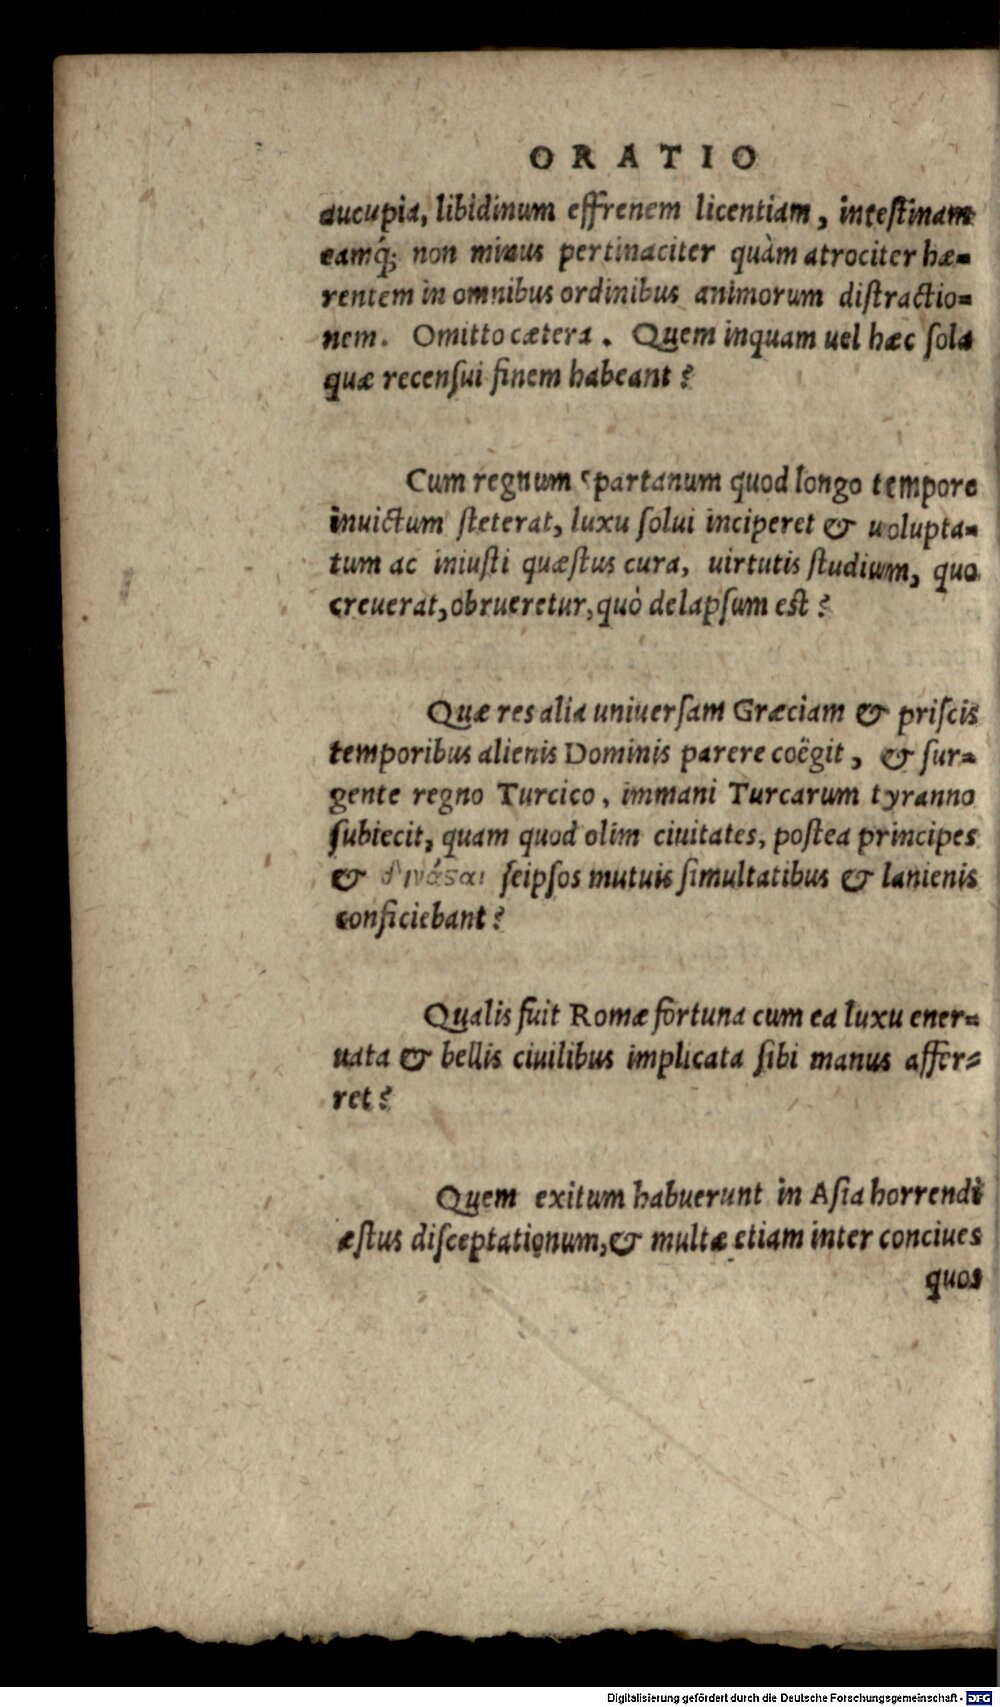 ORATIO
aucupia, libidinum effrenem licentiam, inteſtinam
eamq́; non minus pertinaciter quàm atrociter hæ-
rentem in omnibus ordinibus animorum diſtractio-
nem. Omitto cætera. Quem inquam uel hæc ſola
quæ recenſui finem habeant?
Cum regnum Spartanum quod longo tempore
inuictum ſteterat, luxu ſolui inciperet & uolupta-
tum ac iniuſti quæſtus cura, uirtutis ſtudium, quo
creuerat, obrueretur, quò delapſum eſt?
Quæ res alia uniuerſam Græciam & priſcis
temporibus alienis Dominis parere coëgit, & ſur-
gente regno Turcico, immani Turcarum tyranno
ſubiecit, quam quod olim ciuitates, poſtea principes
& δυνάϛαι ſeipſos mutuis ſimultatibus & lanienis
conficiebant?
Qualis fuit Romæ fortuna cum ea luxu ener-
uata & bellis ciuilibus implicata ſibi manus affer-
ret?
Quem exitum habuerunt in Aſia horrendi
æſtus diſceptationum, & multæ etiam inter conciues
quos
Digitalisierung gefördert durch die Deutsche Forschungsgemeinschaft - DFG